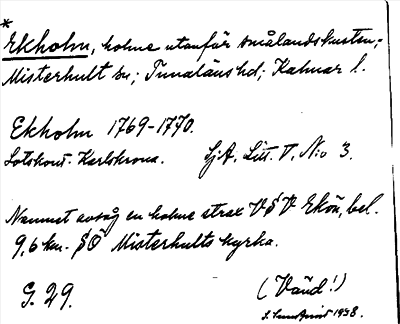 *
Ekholm, holme utanför smålandskusten;
Misterhult sn; Tunaläns hd; Kalmar l.
Ekholm 1769-1770.
Lotskont. Karlskrona. SjA, Litt. V, No 3.
Namnet avsåg en holme strax VSV Ekön, bel.
9,6 km. SÖ Misterhults kyrka.
G. 29.
(Vänd!)
1938.